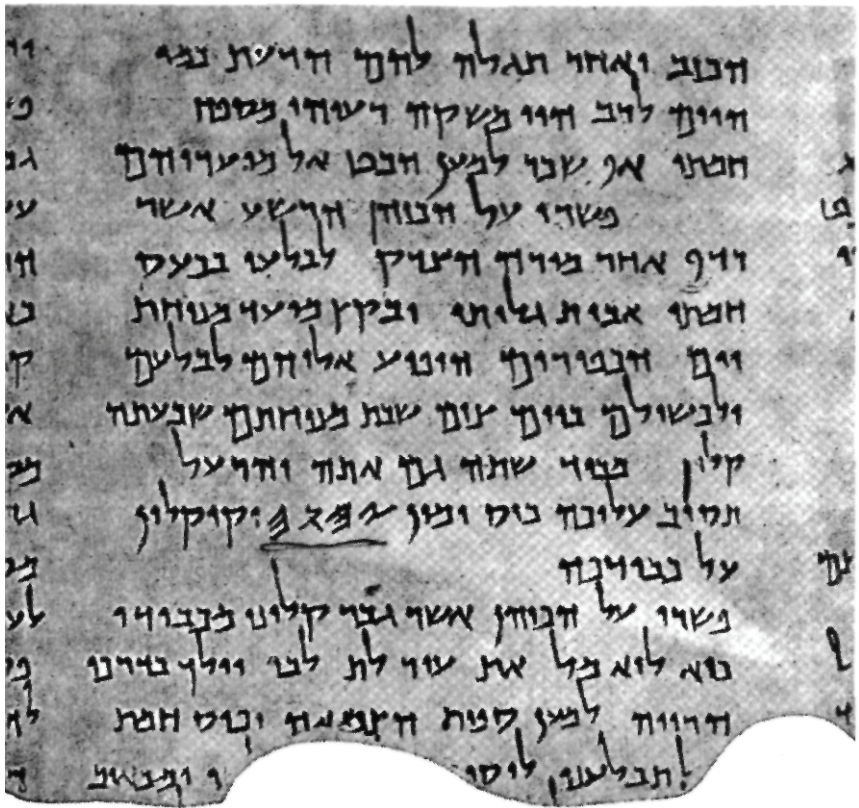 הכזב ואחר תגלה להם הדעת כמי
היים לרב הוי משקה רעיהו מספח
חמתו אף שכר למען הבט אל מועדיהם
פשרו על הכוהן הרשע אשר
רדף אחר מורה הצדק לבלעו בכעס
חמתו אבית גלותו ובקץ מועד מנוחת
יום הכפורים הופיע אליהם לבלעם
ולכשילם ביום צום שבת מנוחתם שבעתה
קלון מכבוד שתה גם אתה והרעל
תסוב עליכה כוס ימין 𐤉𐤄𐤅𐤄 וקיקלון
על כבודכה
פשרו על הכוהן אשר גבר קלונו מכבודו
כיא לוא מל את עור לת לבו וילך בדרכי
הרויה למען ספות הצמאה וכוס חמת
תבלענו